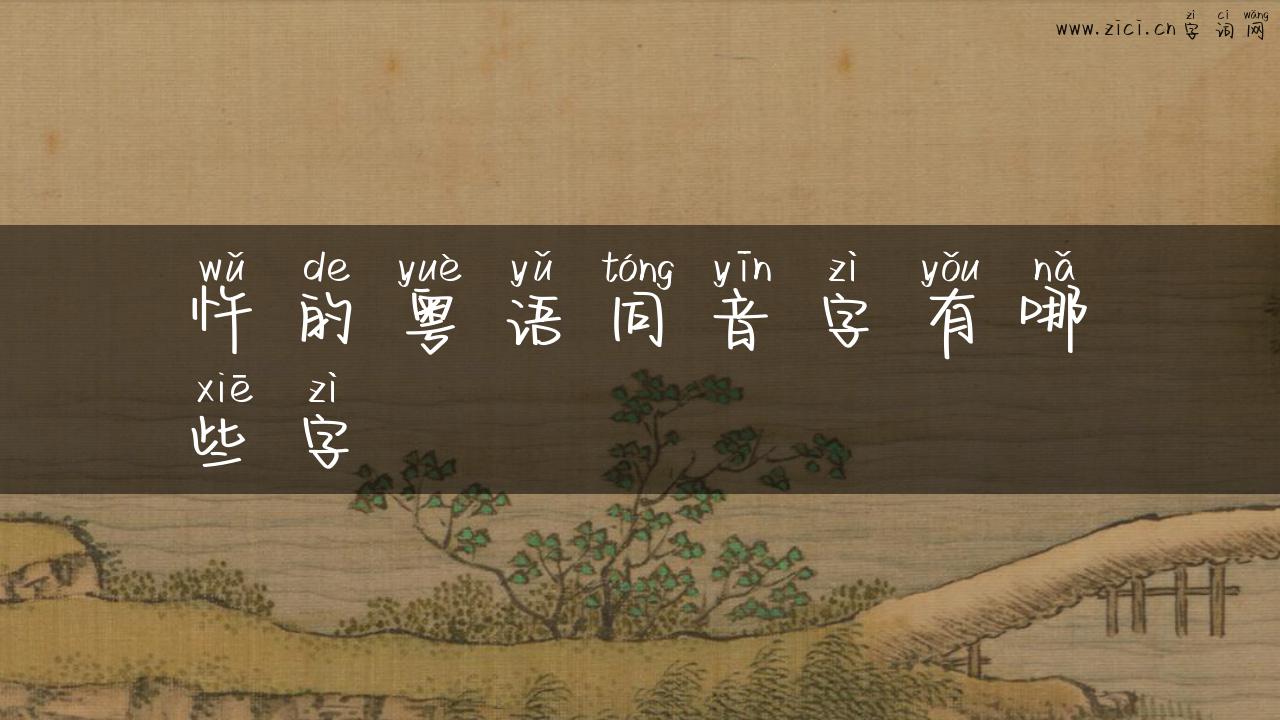 zì cí wǎng
www.zici.cn字词网
wǔ de yuè yǔ tóng yīn zì yǒu nǎ
忤的粤语同音字有哪
xiē zì
些字